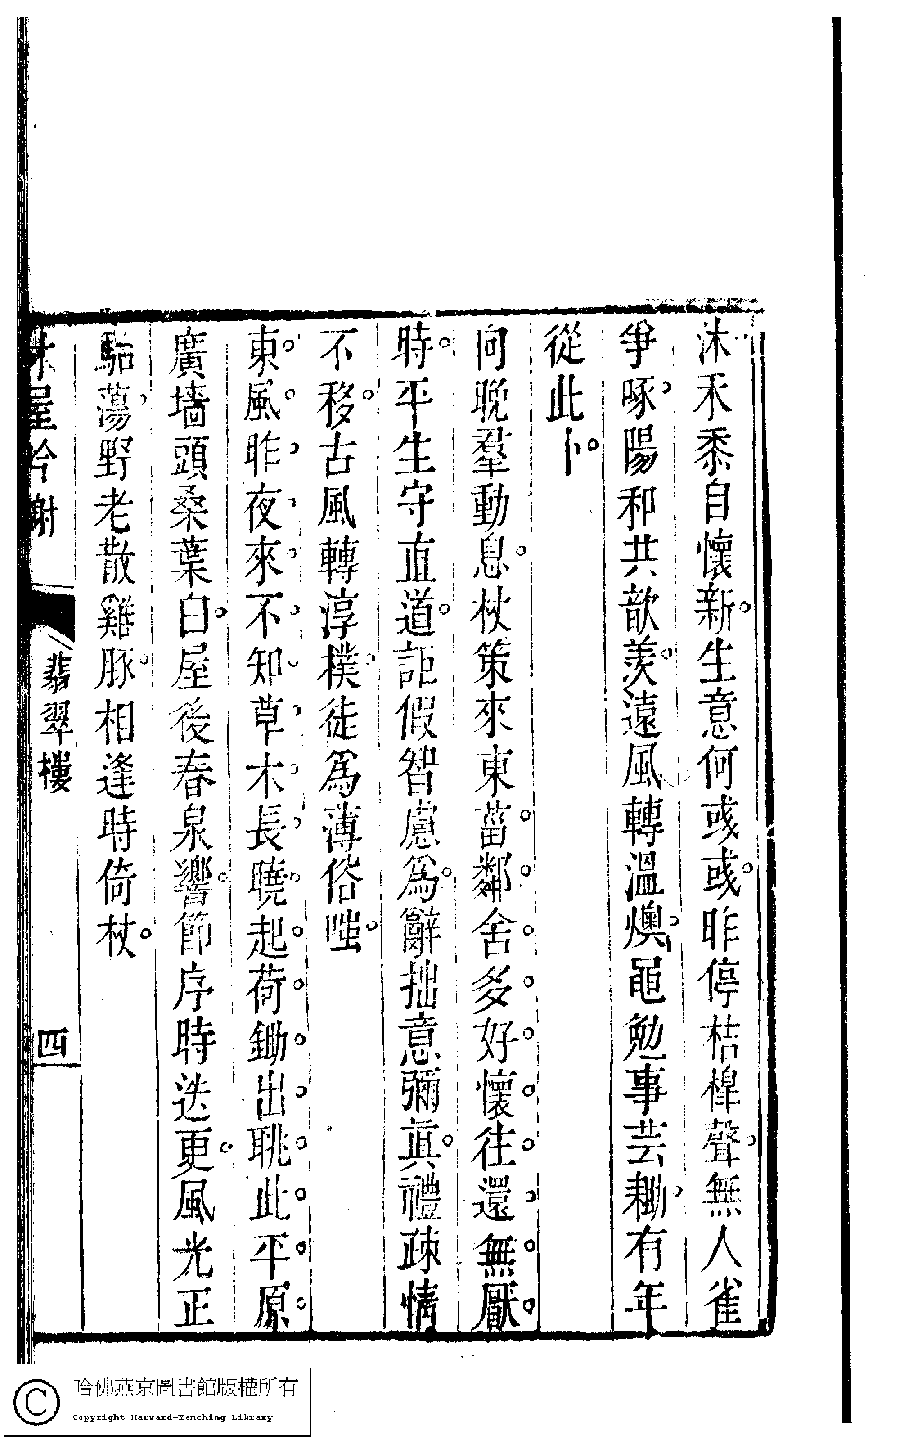 沐禾黍自懷新生意何彧彧昨停桔槔聲無人雀
爭啄陽和共歆羨遠風轉溫燠黽勉事芸耡有年
從此卜
向晚羣動息杖策來東菑鄰舍多好懷往還無厭
時平生守直道詎假智慮為辭拙意彌真禮疎情
不移古風轉淳樸徒為薄俗嗤
東風昨夜來不知草木長曉起荷鋤出眺此平原
廣墻頭桑葉白屋後春泉響節序時迭更風光正
駘蕩野老散雞豚相逢時倚杖
屋吟謝
翡翠樓
四
哈佛燕京圖書館版權所有
Copyright Harvard-Yenching Library